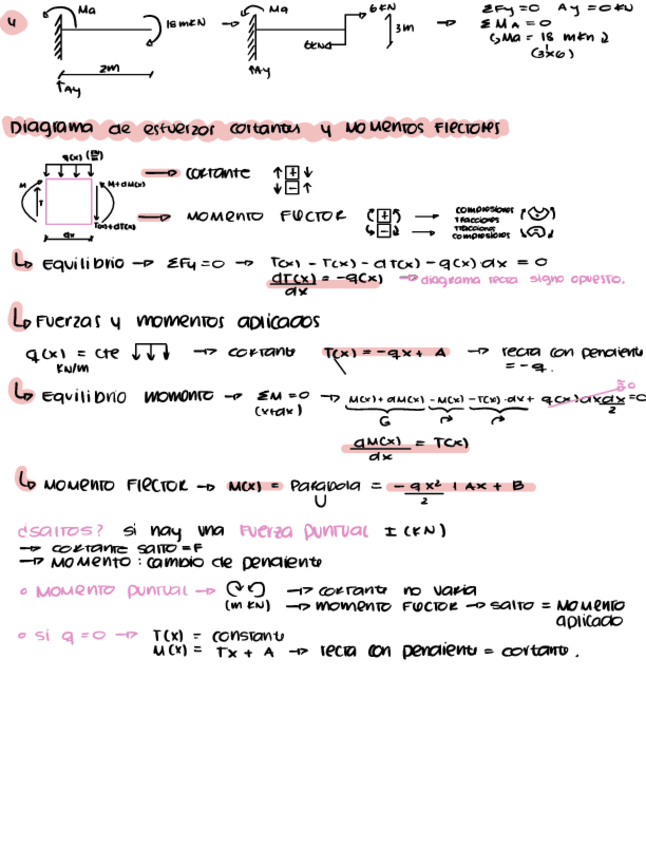 4 Ma 18 mkN → Ma 6KN → ΣFy=0 Ay=0KN
6KN 3m ΣMA=0
2m ↳Ma = 18 mkn
↑Ay ↑Ay (3x6)
Diagrama de esfuerzos cortantes y Momentos Flectores
q(x)
M M+dM(x) → cortante ↑+↓
↓-↑
T T(x)+dT(x) → MOMENTO FLECTOR + → compresiones
tracciones
- → tracciones
compresiones
dx
↳ Equilibrio → ΣFy=0 → T(x) - T(x) - dT(x) - q(x)·dx = 0
dT(x)/dx = -q(x) → diagrama recta signo opuesto.
↳ Fuerzas y momentos aplicados
q(x) = cte → cortante T(x) = -qx + A → recta con pendiente
KN/m = -q.
↳ Equilibrio momento → ΣM=0 → M(x)+dM(x) -M(x) -T(x)·dx + q(x)dx dx/2 =0
(x+dx) ≈0
dM(x)/dx = T(x)
↳ MOMENTO FLECTOR → M(x) = Parabola = -qx²/2 + Ax + B
U
¿saltos? si hay una Fuerza puntual I (KN)
→ cortante salto = F
→ Momento: cambio de pendiente
• MOMENTO puntual → → cortante no varia
(m KN) → momento flector → salto = Momento
aplicado
• si q=0 → T(x) = constante
M(x) = Tx + A → recta con pendiente = cortante.